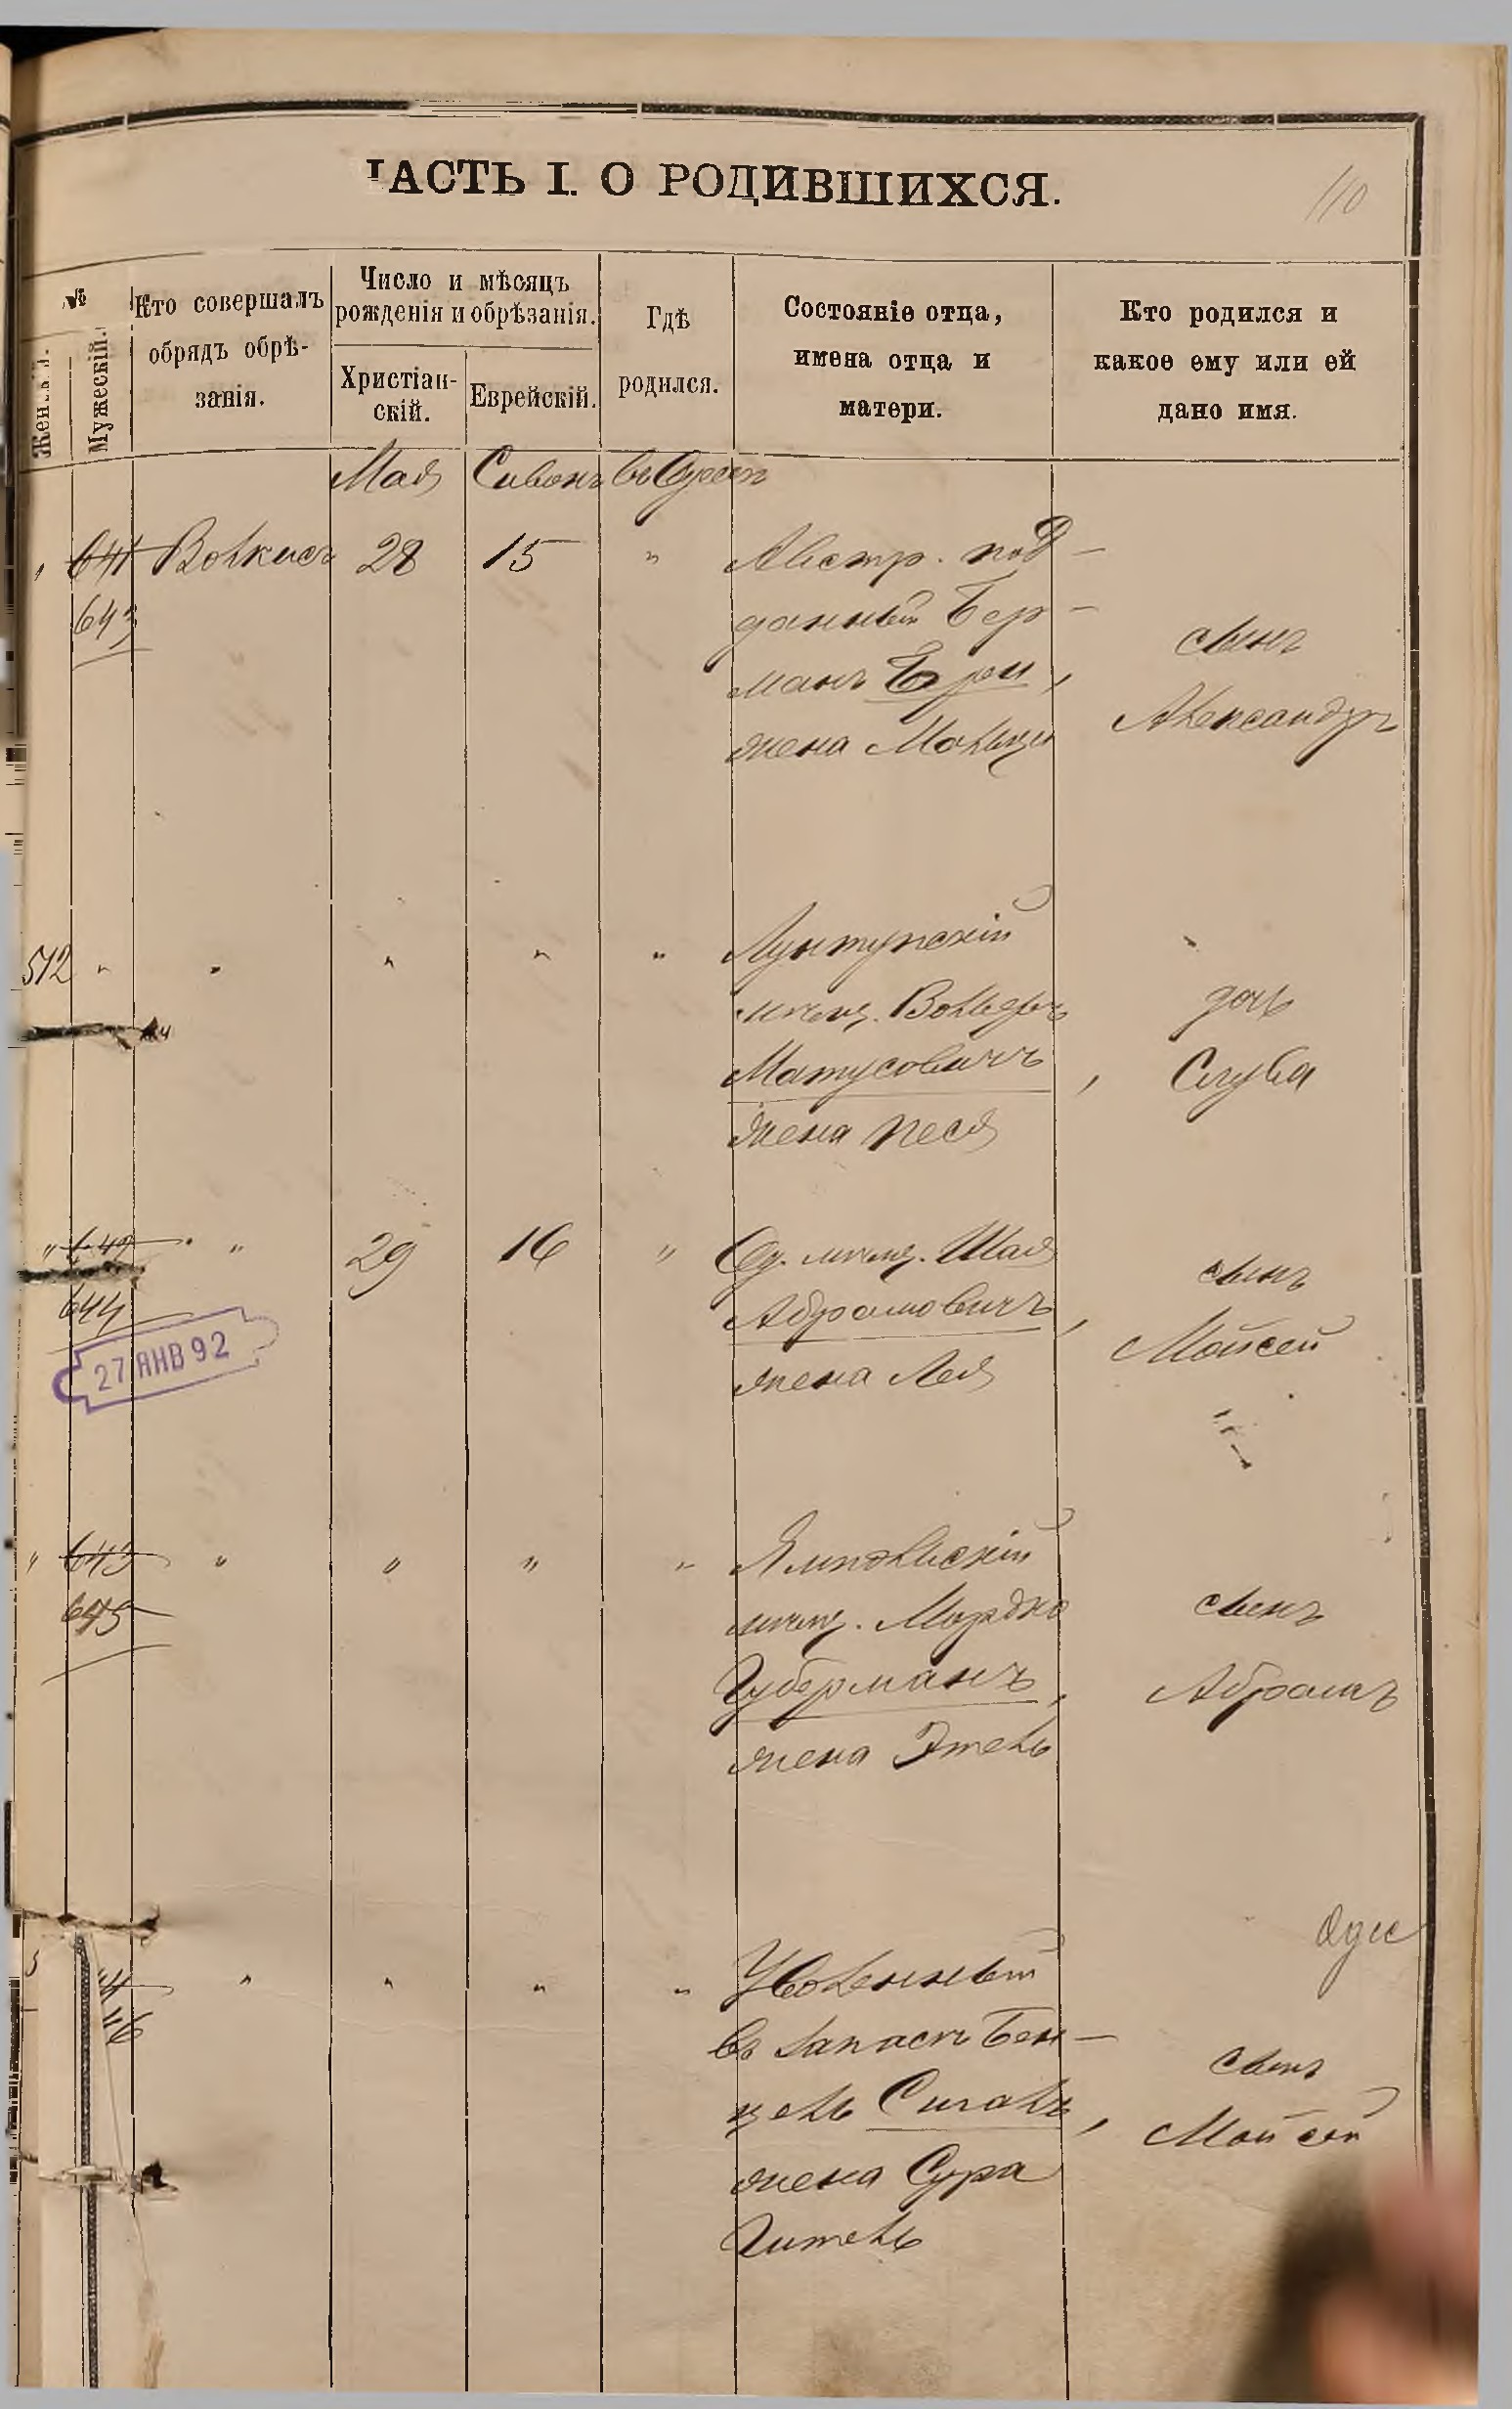 ЧАСТЬ I. О РОДИВШИХСЯ.
110
№
Женскій.
Мужескій.
Кто совершалъ
обрядъ обрѣ-
занія.
Число и мѣсяцъ
рожденія и обрѣзанія.
Христіан-
скій.
Еврейскій.
Гдѣ
родился.
Состояніе отца,
имена отца и
матери.
Кто родился и
какое ему или ей
дано имя.
Мая Сивонъ въ Одессѣ
" 641 Волкисъ 28 15 " Австр. под-
643
данный Гер-
манъ Ери,
жена Мальци
сынъ
Александръ
512 " " " " " Лунтупскій
мѣщ. Вольфъ
Матусовичъ,
жена Песя
дочь
Слува
" 642 " 29 16 " Од. мѣщ. Шая
644
Абрамовичъ,
жена Лея
сынъ
Мойсей
27 ЯНВ 92
" 643 " " " " Ямпольскій
645
мѣщ. Мордко
Губерманъ,
жена Этель
сынъ
Абрамъ
" " " " Уволенный
въ запасъ Бен-
цель Сигалъ,
жена Сура
Гитель
сынъ
Мойсей